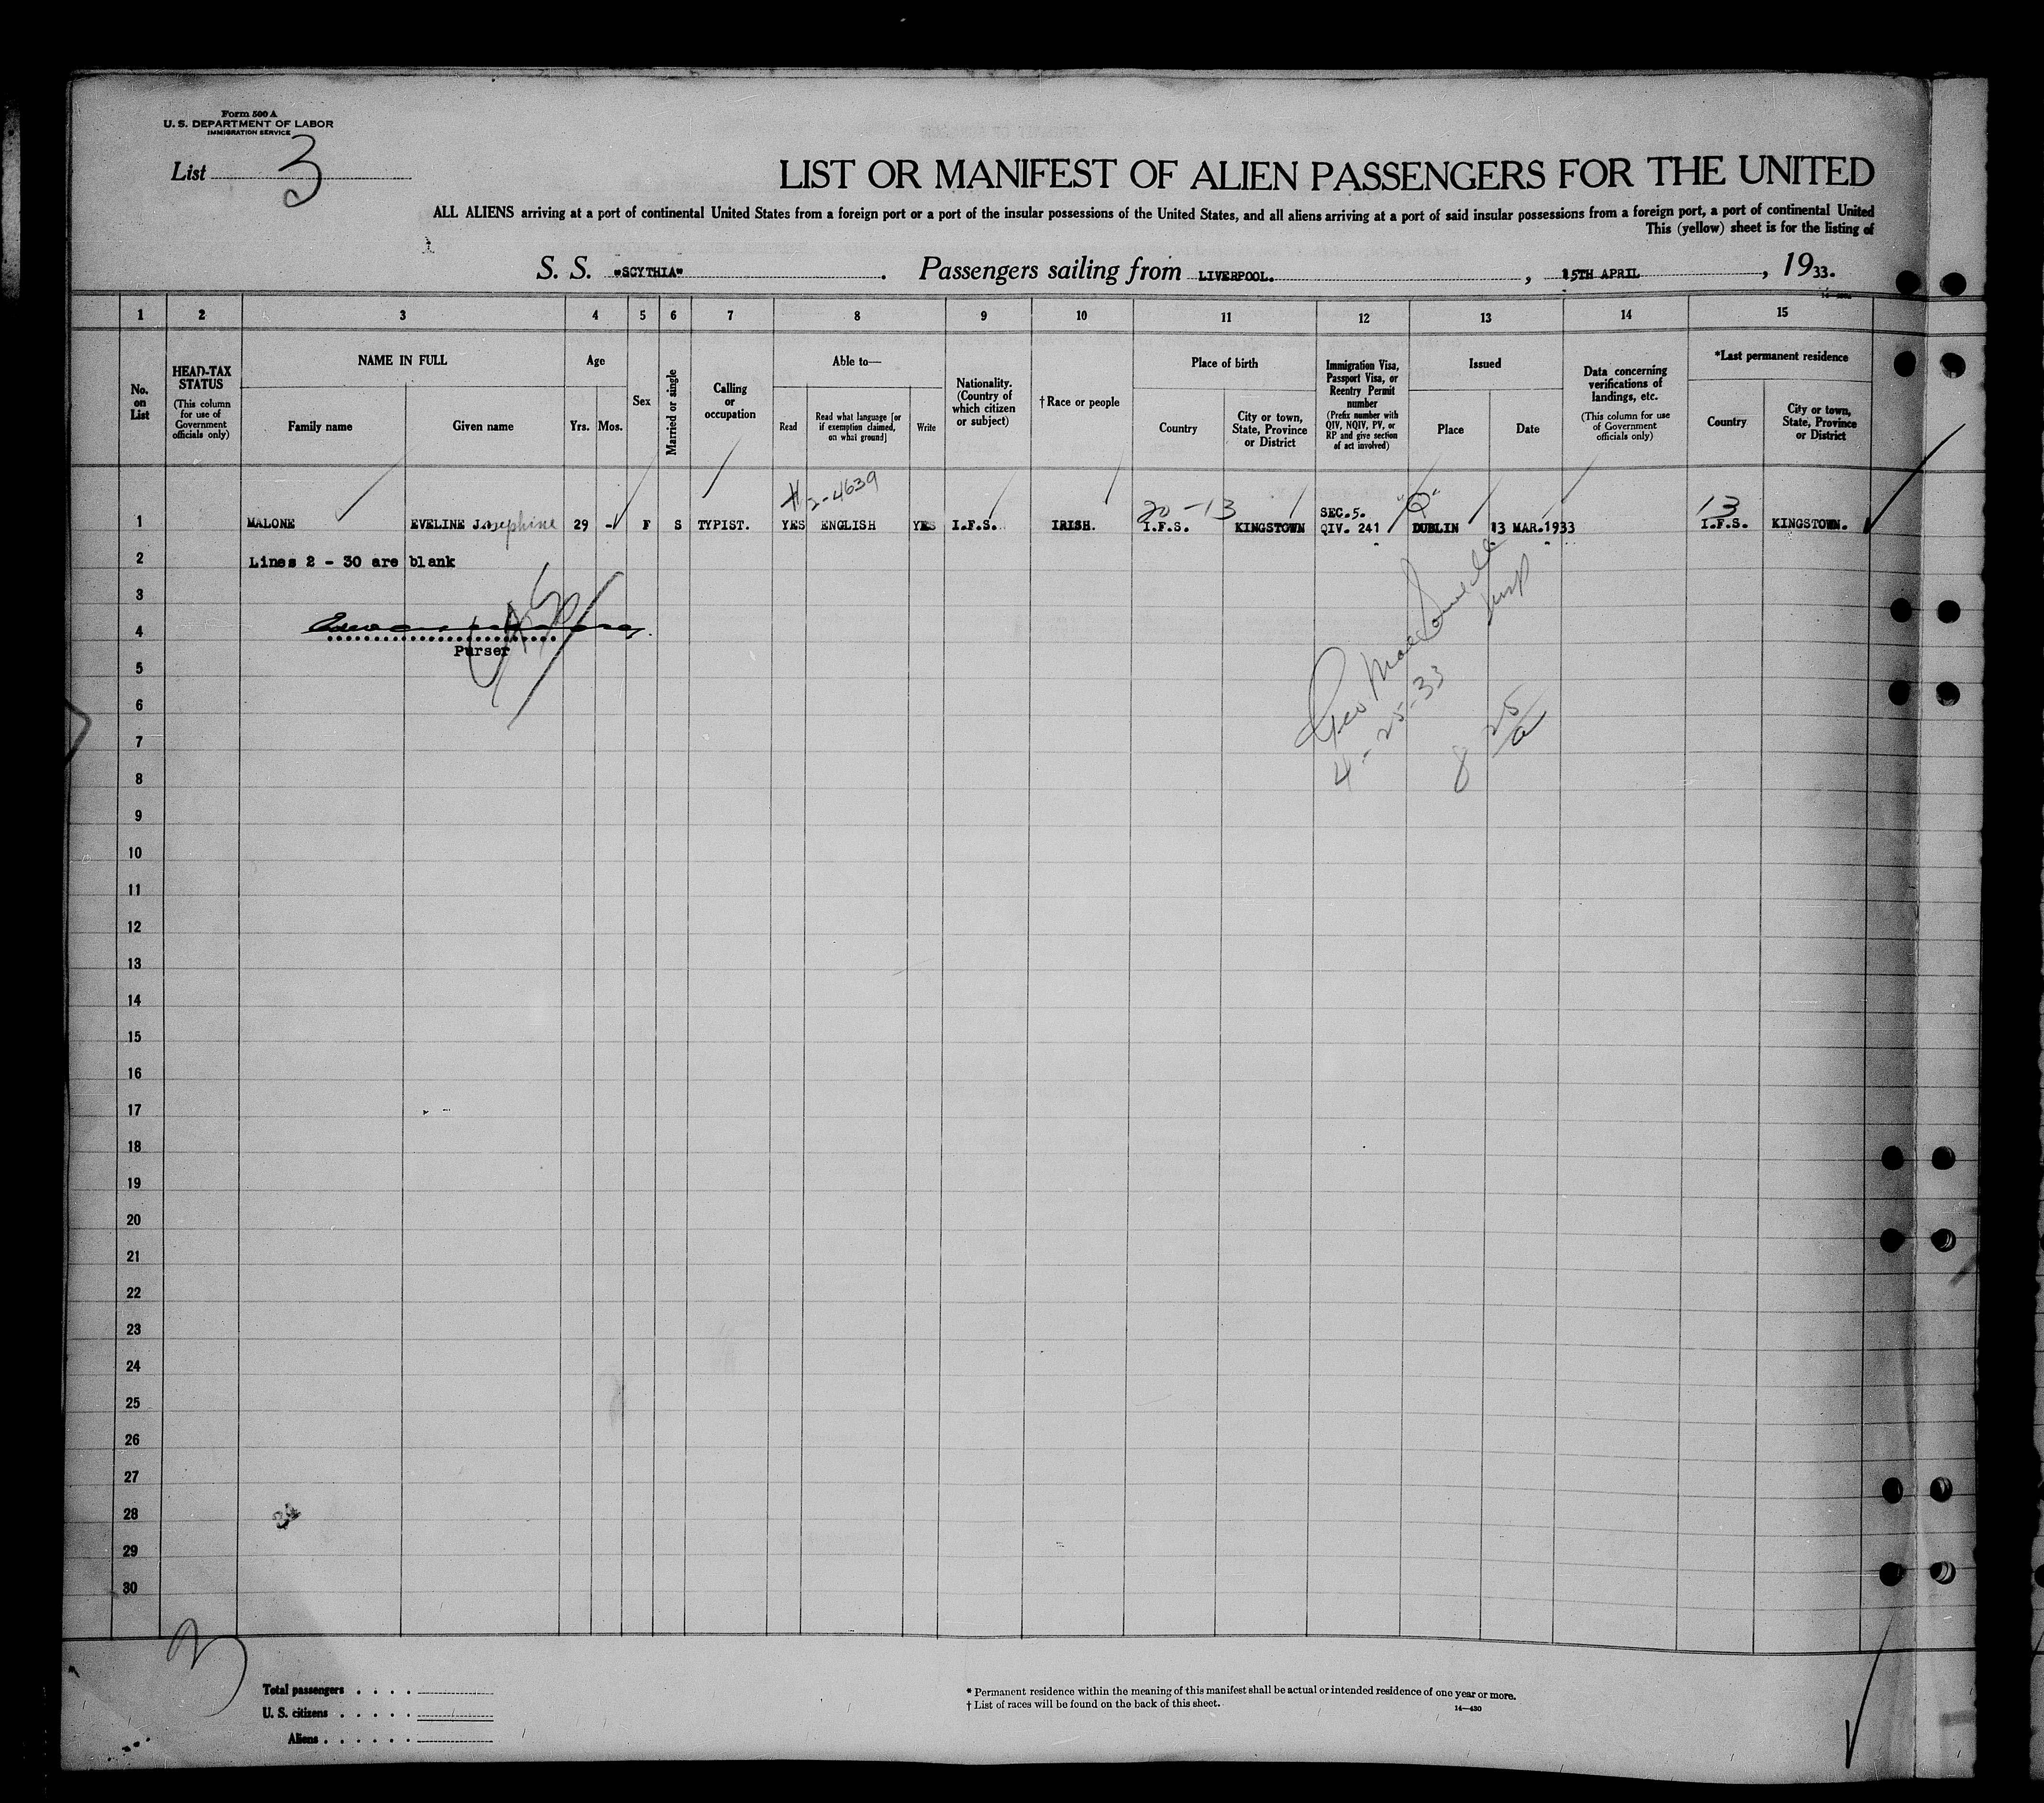 Form 500 A
U. S. DEPARTMENT OF LABOR
IMMIGRATION SERVICE
List 3
LIST OR MANIFEST OF ALIEN PASSENGERS FOR THE UNITED
ALL ALIENS arriving at a port of continental United States from a foreign port or a port of the insular possessions of the United States, and all aliens arriving at a port of said insular possessions from a foreign port, a port of continental United
This (yellow) sheet is for the listing of
S. S. "SCYTHIA" . Passengers sailing from LIVERPOOL. , 15TH APRIL , 1933.
1 2 3 4 5 6 7 8 9 10 11 12 13 14 15
No. on List
HEAD-TAX STATUS (This column for use of Government officials only)
NAME IN FULL
Family name Given name
Age
Yrs. Mos.
Sex
Married or single
Calling or occupation
Able to—
Read Read what language [or if exemption claimed, on what ground] Write
Nationality. (Country of which citizen or subject)
† Race or people
Place of birth
Country City or town, State, Province or District
Immigration Visa, Passport Visa, or Reentry Permit number (Prefix number with QIV, NQIV, PV, or RP and give section of act involved)
Issued
Place Date
Data concerning verifications of landings, etc. (This column for use of Government officials only)
*Last permanent residence
Country City or town, State, Province or District
2-4639
20-13 SEC.5. "Q" 13
1 MALONE EVELINE Josephine 29 - F S TYPIST. YES ENGLISH YES I.F.S. IRISH. I.F.S. KINGSTOWN QIV. 241 DUBLIN 13 MAR.1933 I.F.S. KINGSTOWN.
2 Lines 2 - 30 are blank
3
4
Purser
5
6
7
8
9
10
11
12
13
14
15
16
17
18
19
20
21
22
23
24
25
26
27
28
29
30
4-25-33
8 25/a
3
Total passengers . . . .
U. S. citizens . . . . .
Aliens . . . . . .
* Permanent residence within the meaning of this manifest shall be actual or intended residence of one year or more.
† List of races will be found on the back of this sheet.
14—430